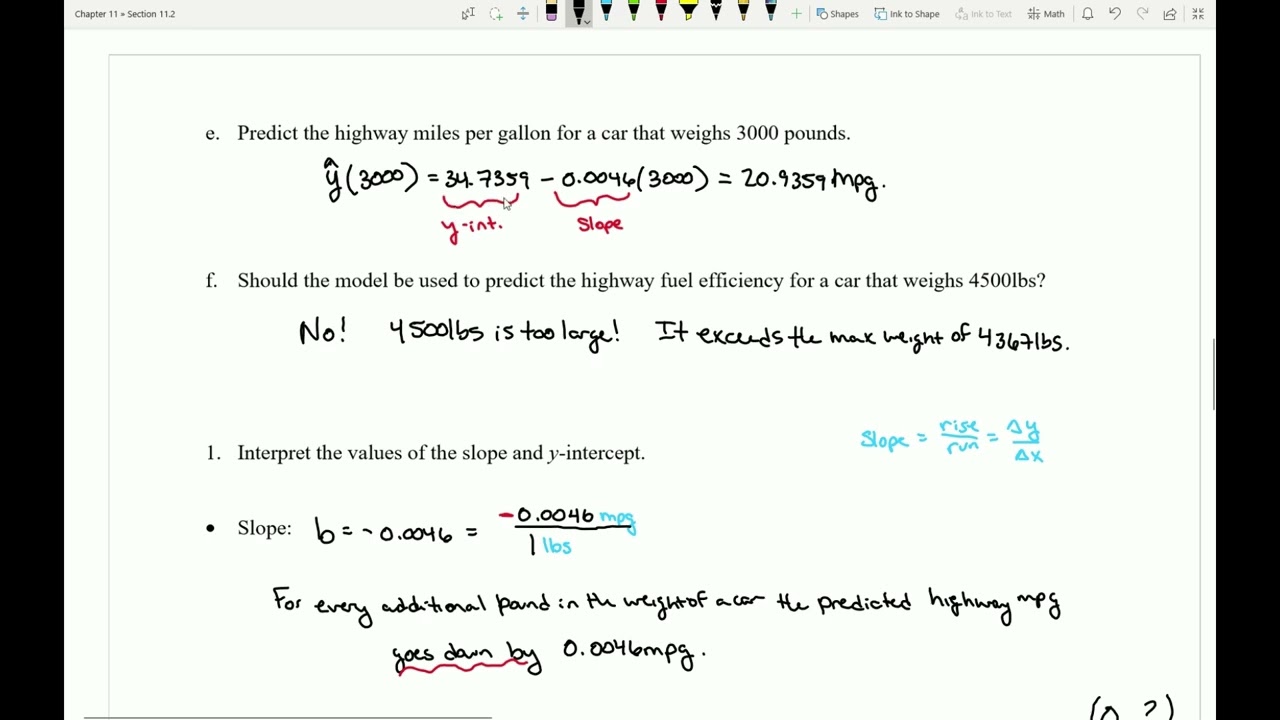 Chapter 11 » Section 11.2
Shapes
Ink to Shape
Ink to Text
Math
e. Predict the highway miles per gallon for a car that weighs 3000 pounds.
ŷ(3000) = 34.7359 - 0.0046(3000) = 20.9359 mpg.
y-int. Slope
f. Should the model be used to predict the highway fuel efficiency for a car that weighs 4500lbs?
No! 4500lbs is too large! It exceeds the max weight of 4367lbs.
Slope = rise/run = Δy/Δx
1. Interpret the values of the slope and y-intercept.
• Slope: b = -0.0046 = -0.0046 mpg
1 lbs
For every additional pound in the weight of a car the predicted highway mpg
goes down by 0.0046mpg.
(0, ?)